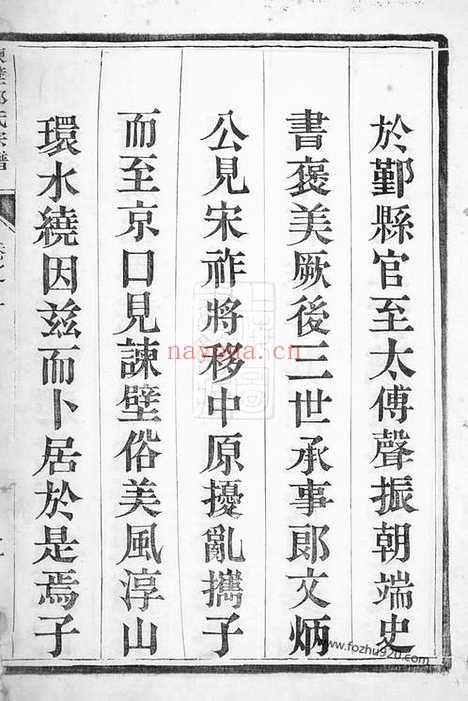 於鄞縣官至太傅聲振朝端史
書褒美厥後三世承事郎文炳
公見宋祚將移中原擾亂攜子
而至京口見諫壁俗美風淳山
環水繞因茲而卜居於是焉子
nayona.cn
www.fozhu920.com